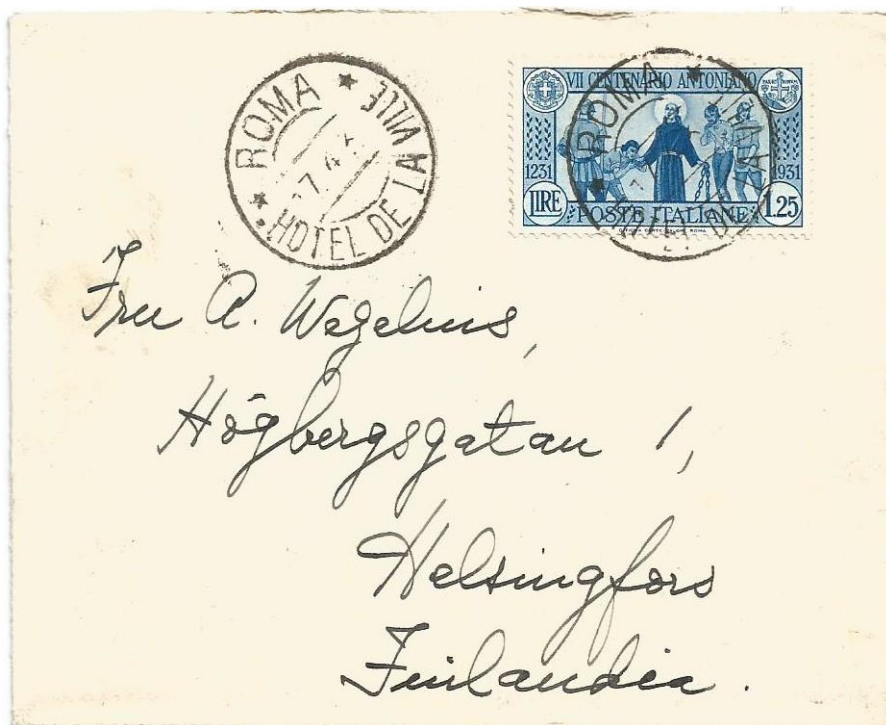 ROMA
HOTEL DE LA VILLE
VII CENTENARIO ANTONIANO
1231 1931
LIRE POSTE ITALIANE 1.25
ROMA
Fru A. Wegelius,
Högbergsgatan 1,
Helsingfors
Finlandia.